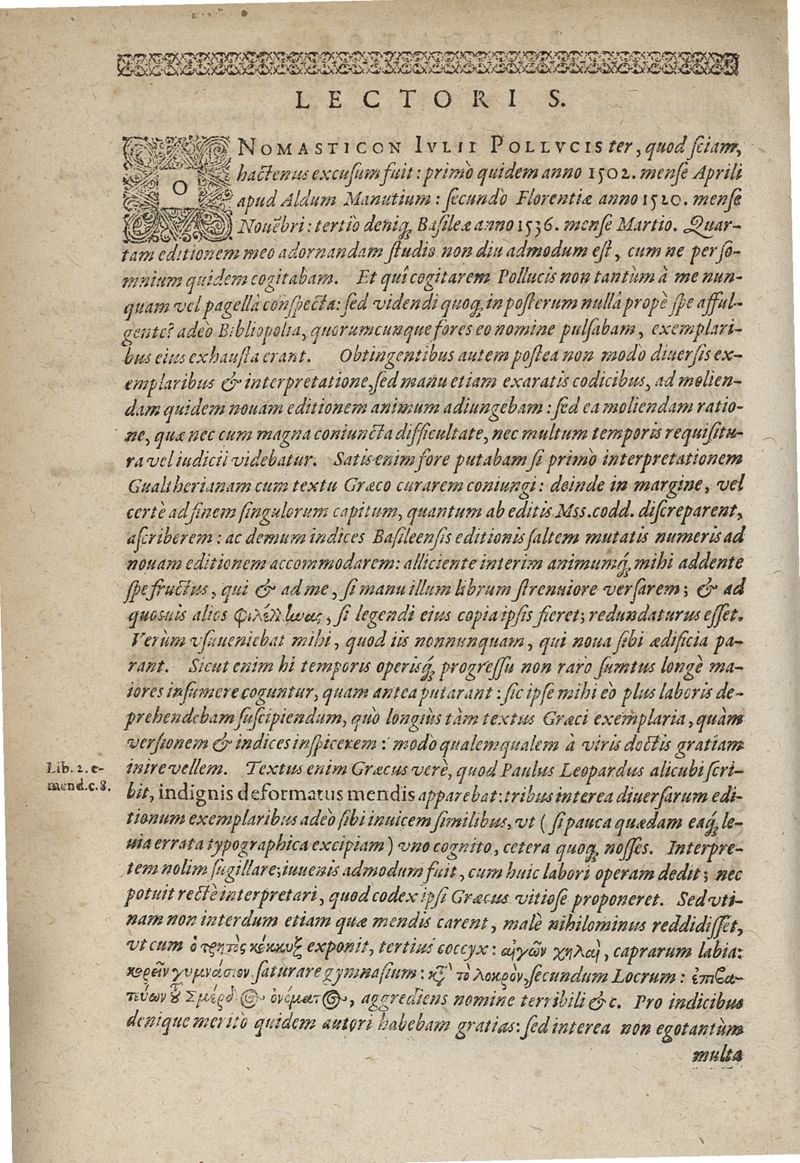 LECTORIS.
ONOMASTICON IVLII POLLVCIS ter, quod sciam,
hactenus excusum fuit: primò quidem anno 1502. mense Aprili
apud Aldum Manutium: secundò Florentiæ anno 1520. mense
Nouẽbri: tertiò deniq; Basileæ anno 1536. mense Martio. Quar-
tam editionem meo adornandam studio non diu admodum est, cum ne per so-
mnium quidem cogitabam. Et quî cogitarem Pollucis non tantùm à me nun-
quam vel pagellâ conspectâ: sed videndi quoq; in posterum nullâ propè spe afful-
gente? adeò Bibliopolia, quorumcunque fores eo nomine pulsabam, exemplari-
bus eius exhausta erant. Obtingentibus autem postea non modò diuersis ex-
emplaribus & interpretatione, sed manu etiam exaratis codicibus, ad molien-
dam quidem nouam editionem animum adiungebam: sed ea moliendam ratio-
ne, quæ nec cum magna coniuncta difficultate, nec multum temporis requisitu-
ra vel iudicii videbatur. Satis enim fore putabam si primò interpretationem
Gualtherianam cum textu Græco curarem coniungi: deinde in margine, vel
certè ad finem singulorum capitum, quantum ab editis Mss. codd. discreparent,
ascriberem: ac demum indices Basileensis editionis saltem mutatis numeris ad
nouam editionem accommodarem: alliciente interim animumq; mihi addente
spe fructus, qui & ad me, si manu illum librum strenuiore versarem; & ad
quosuis alios φιλέλληνας, si legendi eius copia ipsis fieret; redundaturus esset.
Verùm vsuueniebat mihi, quod iis nonnunquam, qui noua sibi ædificia pa-
rant. Sicut enim hi temporis operisq; progressu non raro sumtus longè ma-
iores insumere coguntur, quam antea putarant: sic ipse mihi eò plus laboris de-
prehendebam suscipiendum, quò longiùs tàm textus Græci exemplaria, quàm
versionem & indices inspicerem: modò qualemqualem à viris doctis gratiam
inire vellem. Textus enim Græcus verè, quod Paulus Leopardus alicubi scri-
Lib. 2. e-
mend. c. 8.
bit, indignis deformatus mendis apparebat: tribus interea diuersarum edi-
tionum exemplaribus adeò sibi inuicem similibus, vt (si pauca quædam eaq; le-
uia errata typographica excipiam) vno cognito, cetera quoq; nosses. Interpre-
tem nolim sugillare; iuuenis admodum fuit, cum huic labori operam dedit; nec
potuit rectè interpretari, quod codex ipsi Græcus vitiosè proponeret. Sed vti-
nam non interdum etiam quæ mendis carent, malè nihilominus reddidisset,
vt cum ὁ τρητὸς κόκκυξ exponit, tertius coccyx: αἰγῶν χηλαὶ, caprarum labia:
κορεῖν γυμνάσιον saturare gymnasium: κτ' τὸ λοκρὸν, secundum Locrum: ἐπιβα-
τεύων τοῦ Σμέρδιος ὀνόματος, aggrediens nomine terribili &c. Pro indicibus
denique meritò quidem autori habebam gratias: sed interea non ego tantùm
multa